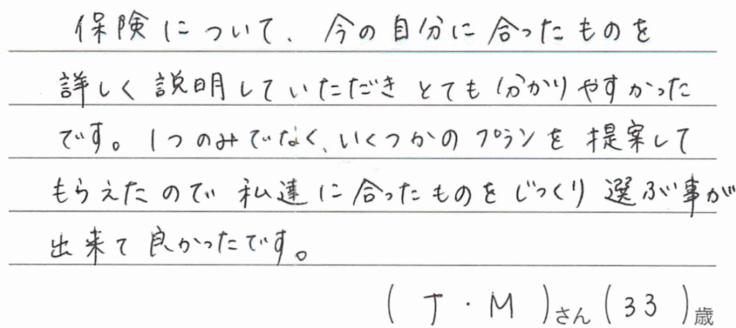 保険について、今の自分に合ったものを
詳しく説明していただきとても分かりやすかった
です。1つのみでなく、いくつかのプランを提案して
もらえたので私達に合ったものをじっくり選ぶ事が
出来て良かったです。
(T・M)さん(33)歳